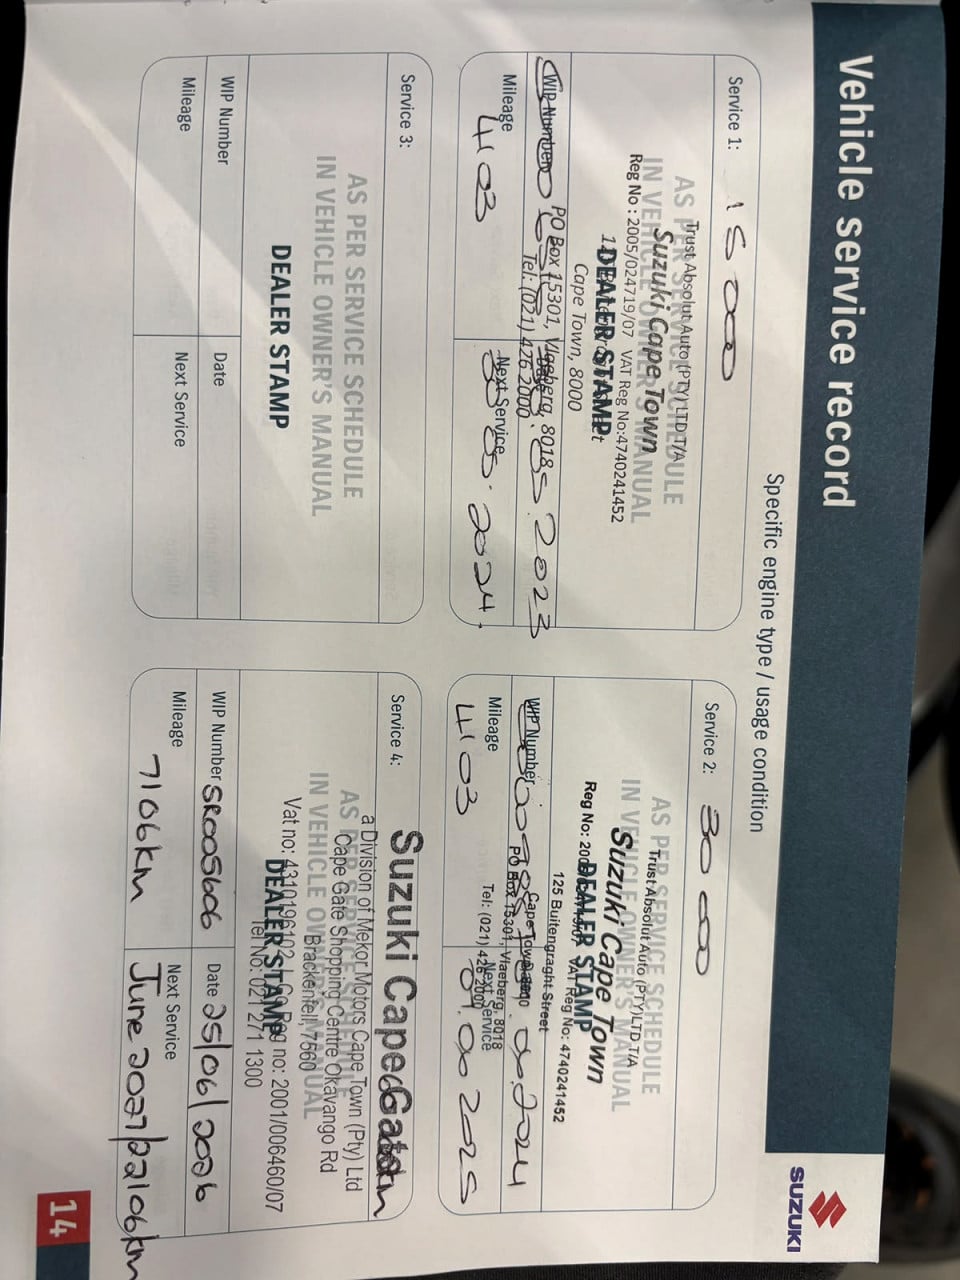 Vehicle service record
SUZUKI
Specific engine type / usage condition
Service 1: 15 000
AS PER SERVICE SCHEDULE
IN VEHICLE OWNER'S MANUAL
DEALER STAMP
Trust Absolut Auto (PTY) LTD T/A
Suzuki Cape Town
Reg No : 2005/024719/07 VAT Reg No:4740241452
Cape Town, 8000
PO Box 15301, Vlaeberg, 8018
Tel: (021) 426 2000
WIP Number
2023
Mileage
4103
Next Service
2024.
Service 2: 30 000
AS PER SERVICE SCHEDULE
IN VEHICLE OWNER'S MANUAL
DEALER STAMP
Trust Absolut Auto (PTY)LTD T/A
Suzuki Cape Town
Reg No: VAT Reg No: 4740241452
125 Buitengraght Street
Cape Town, 8000
PO Box 15301, Vlaeberg, 8018
Tel: (021) 426 2000
WIP Number
2024
Mileage
4103
Next Service
2025
Service 3:
AS PER SERVICE SCHEDULE
IN VEHICLE OWNER'S MANUAL
DEALER STAMP
WIP Number
Date
Mileage
Next Service
Service 4:
60 000km
Suzuki Cape Gate
a Division of Mekor Motors Cape Town (Pty) Ltd
Cape Gate Shopping Centre Okavango Rd
Brackenfell, 7560
Vat no: 4310196102 Co Reg no: 2001/006460/07
Tel No: 021 271 1300
AS PER SERVICE SCHEDULE
IN VEHICLE OWNER'S MANUAL
DEALER STAMP
WIP Number SR005606
Date 25/06/2026
Mileage
7106km
Next Service
June 2027/22106km
14